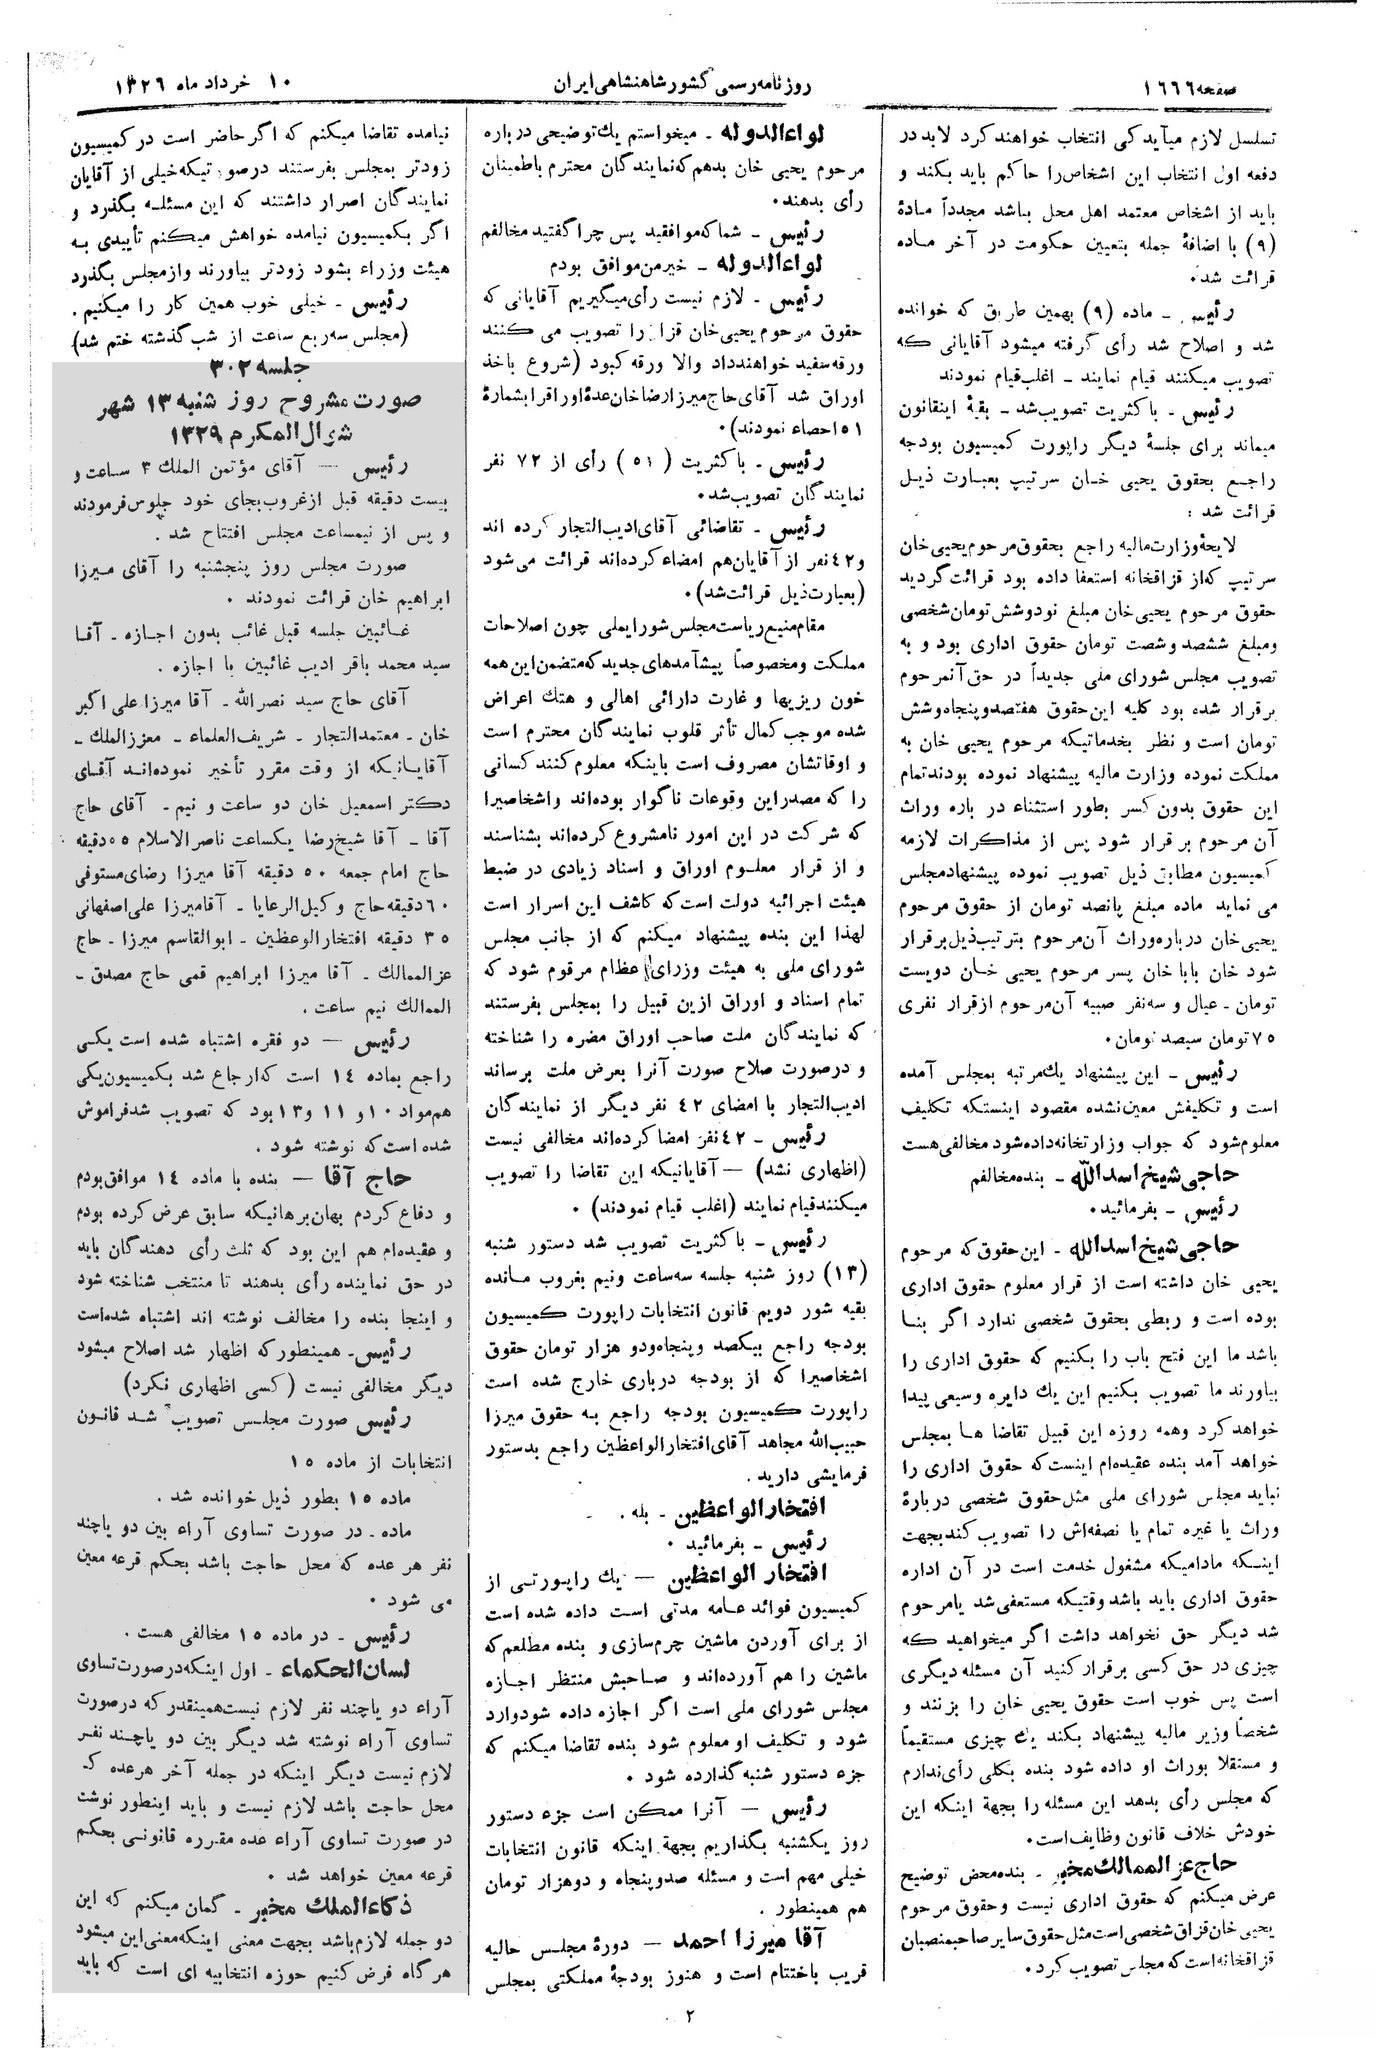 صفحه ۱۶۶۶
روزنامه رسمی کشور شاهنشاهی ایران
۱۰ خرداد ماه ۱۳۲۶
تسلسل لازم میآید کی انتخاب خواهند کرد لابد در
دفعه اول انتخاب این اشخاص را حاکم باید بکند و
باید از اشخاص معتمد اهل محل باشد مجدداً مادهٔ
(۹) با اضافهٔ جمله بتعیین حکومت در آخر ماده
قرائت شد.
رئیس - ماده (۹) بهمین طریق که خوانده
شد و اصلاح شد رأی گرفته میشود آقایانی که
تصویب میکنند قیام نمایند - اغلب قیام نمودند
رئیس - باکثریت تصویب شد - بقیهٔ اینقانون
میماند برای جلسهٔ دیگر راپورت کمیسیون بودجه
راجع بحقوق یحیی خان سرتیپ بعبارت ذیل
قرائت شد :
لایحهٔ وزارت مالیه راجع بحقوق مرحوم یحیی خان
سرتیپ که از قزاقخانه استعفا داده بود قرائت گردید
حقوق مرحوم یحیی خان مبلغ نود و شش تومان شخصی
و مبلغ ششصد و شصت تومان حقوق اداری بود و به
تصویب مجلس شورای ملی جدیداً در حق آنمرحوم
برقرار شده بود کلیه این حقوق هفتصد و پنجاه و شش
تومان است و نظر بخدماتیکه مرحوم یحیی خان به
مملکت نموده وزارت مالیه پیشنهاد نموده بودند تمام
این حقوق بدون کسر بطور استثناء در باره وراث
آن مرحوم برقرار شود پس از مذاکرات لازمه
کمیسیون مطابق ذیل تصویب نموده پیشنهاد مجلس
می نماید ماده مبلغ پانصد تومان از حقوق مرحوم
یحیی خان درباره وراث آن مرحوم بترتیب ذیل برقرار
شود خان باباخان پسر مرحوم یحیی خان دویست
تومان - عیال و سه نفر صبیه آن مرحوم از قرار نفری
۷۵ تومان سیصد تومان.
رئیس - این پیشنهاد یک مرتبه بمجلس آمده
است و تکلیفش معین نشده مقصود اینستکه تکلیف
معلوم شود که جواب وزارتخانه داده شود مخالفی هست
حاجی شیخ اسدالله - بنده مخالفم
رئیس - بفرمائید.
حاجی شیخ اسدالله - این حقوق که مرحوم
یحیی خان داشته است از قرار معلوم حقوق اداری
بوده است و ربطی بحقوق شخصی ندارد اگر بنا
باشد ما این فتح باب را بکنیم که حقوق اداری را
بیاورند ما تصویب بکنیم این یك دایره وسیعی پیدا
خواهد کرد وهمه روزه این قبیل تقاضا ها بمجلس
خواهد آمد بنده عقیده‌ام اینست که حقوق اداری را
نباید مجلس شورای ملی مثل حقوق شخصی دربارهٔ
وراث یا غیره تمام یا نصفه‌اش را تصویب کند بجهت
اینکه مادامیکه مشغول خدمت است در آن اداره
حقوق اداری باید باشد وقتیکه مستعفی شد یا مرحوم
شد دیگر حق نخواهد داشت اگر میخواهید که
چیزی در حق کسی برقرار کنید آن مسئله دیگری
است پس خوب است حقوق یحیی خان را بزنند و
شخصاً وزیر مالیه پیشنهاد بکند یك چیزی مستقیماً
و مستقلا بوراث او داده شود بنده بکلی رأی ندارم
که مجلس رأی بدهد این مسئله را بجهة اینکه این
خودش خلاف قانون وظایف است.
حاج عزالممالك مخبر - بنده محض توضیح
عرض میکنم که حقوق اداری نیست و حقوق مرحوم
یحیی خان قزاق شخصی است مثل حقوق سایر صاحبمنصبان
قزاقخانه است که مجلس تصویب کرد.
لواءالدوله - میخواستم یك توضیحی درباره
مرحوم یحیی خان بدهم که نمایندگان محترم باطمینان
رأی بدهند.
رئیس - شما که موافقید پس چرا گفتید مخالفم
لواءالدوله - خیر من موافق بودم
رئیس - لازم نیست رأی میگیریم آقایانی که
حقوق مرحوم یحیی خان قزاق را تصویب می کنند
ورقه سفید خواهند داد والا ورقه کبود (شروع باخذ
اوراق شد آقای حاج میرزا رضاخان عدهٔ اوراق را بشمارهٔ
۵۱ احصاء نمودند).
رئیس - باکثریت (۵۱) رأی از ۷۲ نفر
نمایندگان تصویب شد.
رئیس - تقاضائی آقای ادیب التجار کرده اند
و ۴۲ نفر از آقایان هم امضاء کرده‌اند قرائت می شود
(بعبارت ذیل قرائت شد).
مقام منیع ریاست مجلس شورایملی چون اصلاحات
مملکت و مخصوصاً پیشآمدهای جدید که متضمن این همه
خون ریزیها و غارت دارائی اهالی و هتك اعراض
شده موجب کمال تأثر قلوب نمایندگان محترم است
و اوقاتشان مصروف است باینکه معلوم کنند کسانی
را که مصدر این وقوعات ناگوار بوده‌اند واشخاصیرا
که شرکت در این امور نامشروع کرده‌اند بشناسند
و از قرار معلوم اوراق و اسناد زیادی در ضبط
هیئت اجرائیه دولت است که کاشف این اسرار است
لهذا این بنده پیشنهاد میکنم که از جانب مجلس
شورای ملی به هیئت وزرای عظام مرقوم شود که
تمام اسناد و اوراق ازین قبیل را بمجلس بفرستند
که نمایندگان ملت صاحب اوراق مضره را شناخته
و درصورت صلاح صورت آنرا بعرض ملت برساند
ادیب التجار با امضای ۴۲ نفر دیگر از نمایندگان
رئیس - ۴۲ نفر امضا کرده‌اند مخالفی نیست
(اظهاری نشد) — آقایانیکه این تقاضا را تصویب
میکنند قیام نمایند (اغلب قیام نمودند) .
رئیس - باکثریت تصویب شد دستور شنبه
(۱۳) روز شنبه جلسه سه ساعت ونیم بغروب مانده
بقیه شور دویم قانون انتخابات راپورت کمیسیون
بودجه راجع بیکصد و پنجاه و دو هزار تومان حقوق
اشخاصیرا که از بودجه درباری خارج شده است
راپورت کمیسیون بودجه راجع به حقوق میرزا
حبیب الله مجاهد آقای افتخار الواعظین راجع بدستور
فرمایشی دارید.
افتخار الواعظین - بله .
رئیس - بفرمائید .
افتخار الواعظین — یك راپورتی از
کمیسیون فوائد عامه مدتی است داده شده است
از برای آوردن ماشین چرم سازی و بنده مطلعم که
ماشین را هم آورده‌اند و صاحبش منتظر اجازه
مجلس شورای ملی است اگر اجازه داده شود وارد
شود و تکلیف او معلوم شود بنده تقاضا میکنم که
جزء دستور شنبه گذارده شود .
رئیس — آنرا ممکن است جزء دستور
روز یکشنبه بگذاریم بجهة اینکه قانون انتخابات
خیلی مهم است و مسئله صد و پنجاه و دو هزار تومان
هم همینطور .
آقا میرزا احمد — دورهٔ مجلس حالیه
قریب باختتام است و هنوز بودجهٔ مملکتی بمجلس
نیامده تقاضا میکنم که اگر حاضر است در کمیسیون
زودتر بمجلس بفرستند درصورتیکه خیلی از آقایان
نمایندگان اصرار داشتند که این مسئله بگذرد و
اگر بکمیسیون نیامده خواهش میکنم تأییدی به
هیئت وزراء بشود زودتر بیاورند و از مجلس بگذرد
رئیس - خیلی خوب همین کار را میکنیم .
(مجلس سه ربع ساعت از شب گذشته ختم شد)
جلسه ۳۰۲
صورت مشروح روز شنبه ۱۳ شهر
شوال المکرم ۱۳۲۹
رئیس — آقای مؤتمن الملك ۳ ساعت و
بیست دقیقه قبل از غروب بجای خود جلوس فرمودند
و پس از نیمساعت مجلس افتتاح شد .
صورت مجلس روز پنجشنبه را آقای میرزا
ابراهیم خان قرائت نمودند .
غائبین جلسه قبل غائب بدون اجازه - آقا
سید محمد باقر ادیب غائبین با اجازه .
آقای حاج سید نصرالله - آقا میرزا علی اکبر
خان - معتمدالتجار - شریف العلماء - معزز الملك -
آقایانیکه از وقت مقرر تأخیر نموده‌اند آقای
دکتر اسمعیل خان دو ساعت و نیم - آقای حاج
آقا - آقا شیخ رضا یکساعت ناصرالاسلام ۵۵ دقیقه
حاج امام جمعه ۵۰ دقیقه آقا میرزا رضای مستوفی
۶۰ دقیقه حاج وکیل الرعایا - آقا میرزا علی اصفهانی
۳۵ دقیقه افتخار الوعظین - ابوالقاسم میرزا - حاج
عزالممالك - آقا میرزا ابراهیم قمی حاج مصدق -
الممالك نیم ساعت .
رئیس — دو فقره اشتباه شده است یکی
راجع بماده ۱۴ است که ارجاع شد بکمیسیون یکی
هم مواد ۱۰ و ۱۱ و ۱۳ بود که تصویب شد فراموش
شده است که نوشته شود .
حاج آقا — بنده با ماده ۱۴ موافق بودم
و دفاع کردم بهان برهانیکه سابق عرض کرده بودم
و عقیده‌ام هم این بود که ثلث رأی دهندگان باید
در حق نماینده رأی بدهند تا منتخب شناخته شود
و اینجا بنده را مخالف نوشته اند اشتباه شده‌است
رئیس - همینطور که اظهار شد اصلاح میشود
دیگر مخالفی نیست (کسی اظهاری نکرد)
رئیس صورت مجلس تصویب شد قانون
انتخابات از ماده ۱۵
ماده ۱۵ بطور ذیل خوانده شد .
ماده - در صورت تساوی آراء بین دو یا چند
نفر هر عده که محل حاجت باشد بحکم قرعه معین
می شود .
رئیس - در ماده ۱۵ مخالفی هست .
لسان الحکماء - اول اینکه درصورت تساوی
آراء دو یا چند نفر لازم نیست همینقدر که درصورت
تساوی آراء نوشته شد دیگر بین دو یا چند نفر
لازم نیست دیگر اینکه در جمله آخر هر عده که
محل حاجت باشد لازم نیست و باید اینطور نوشت
در صورت تساوی آراء عده مقرره قانونی بحکم
قرعه معین خواهد شد .
ذکاءالملك مخبر - گمان میکنم که این
دو جمله لازم باشد بجهت معنی اینکه معنی این میشود
هرگاه فرض کنیم حوزه انتخابیه ای است که باید
۲